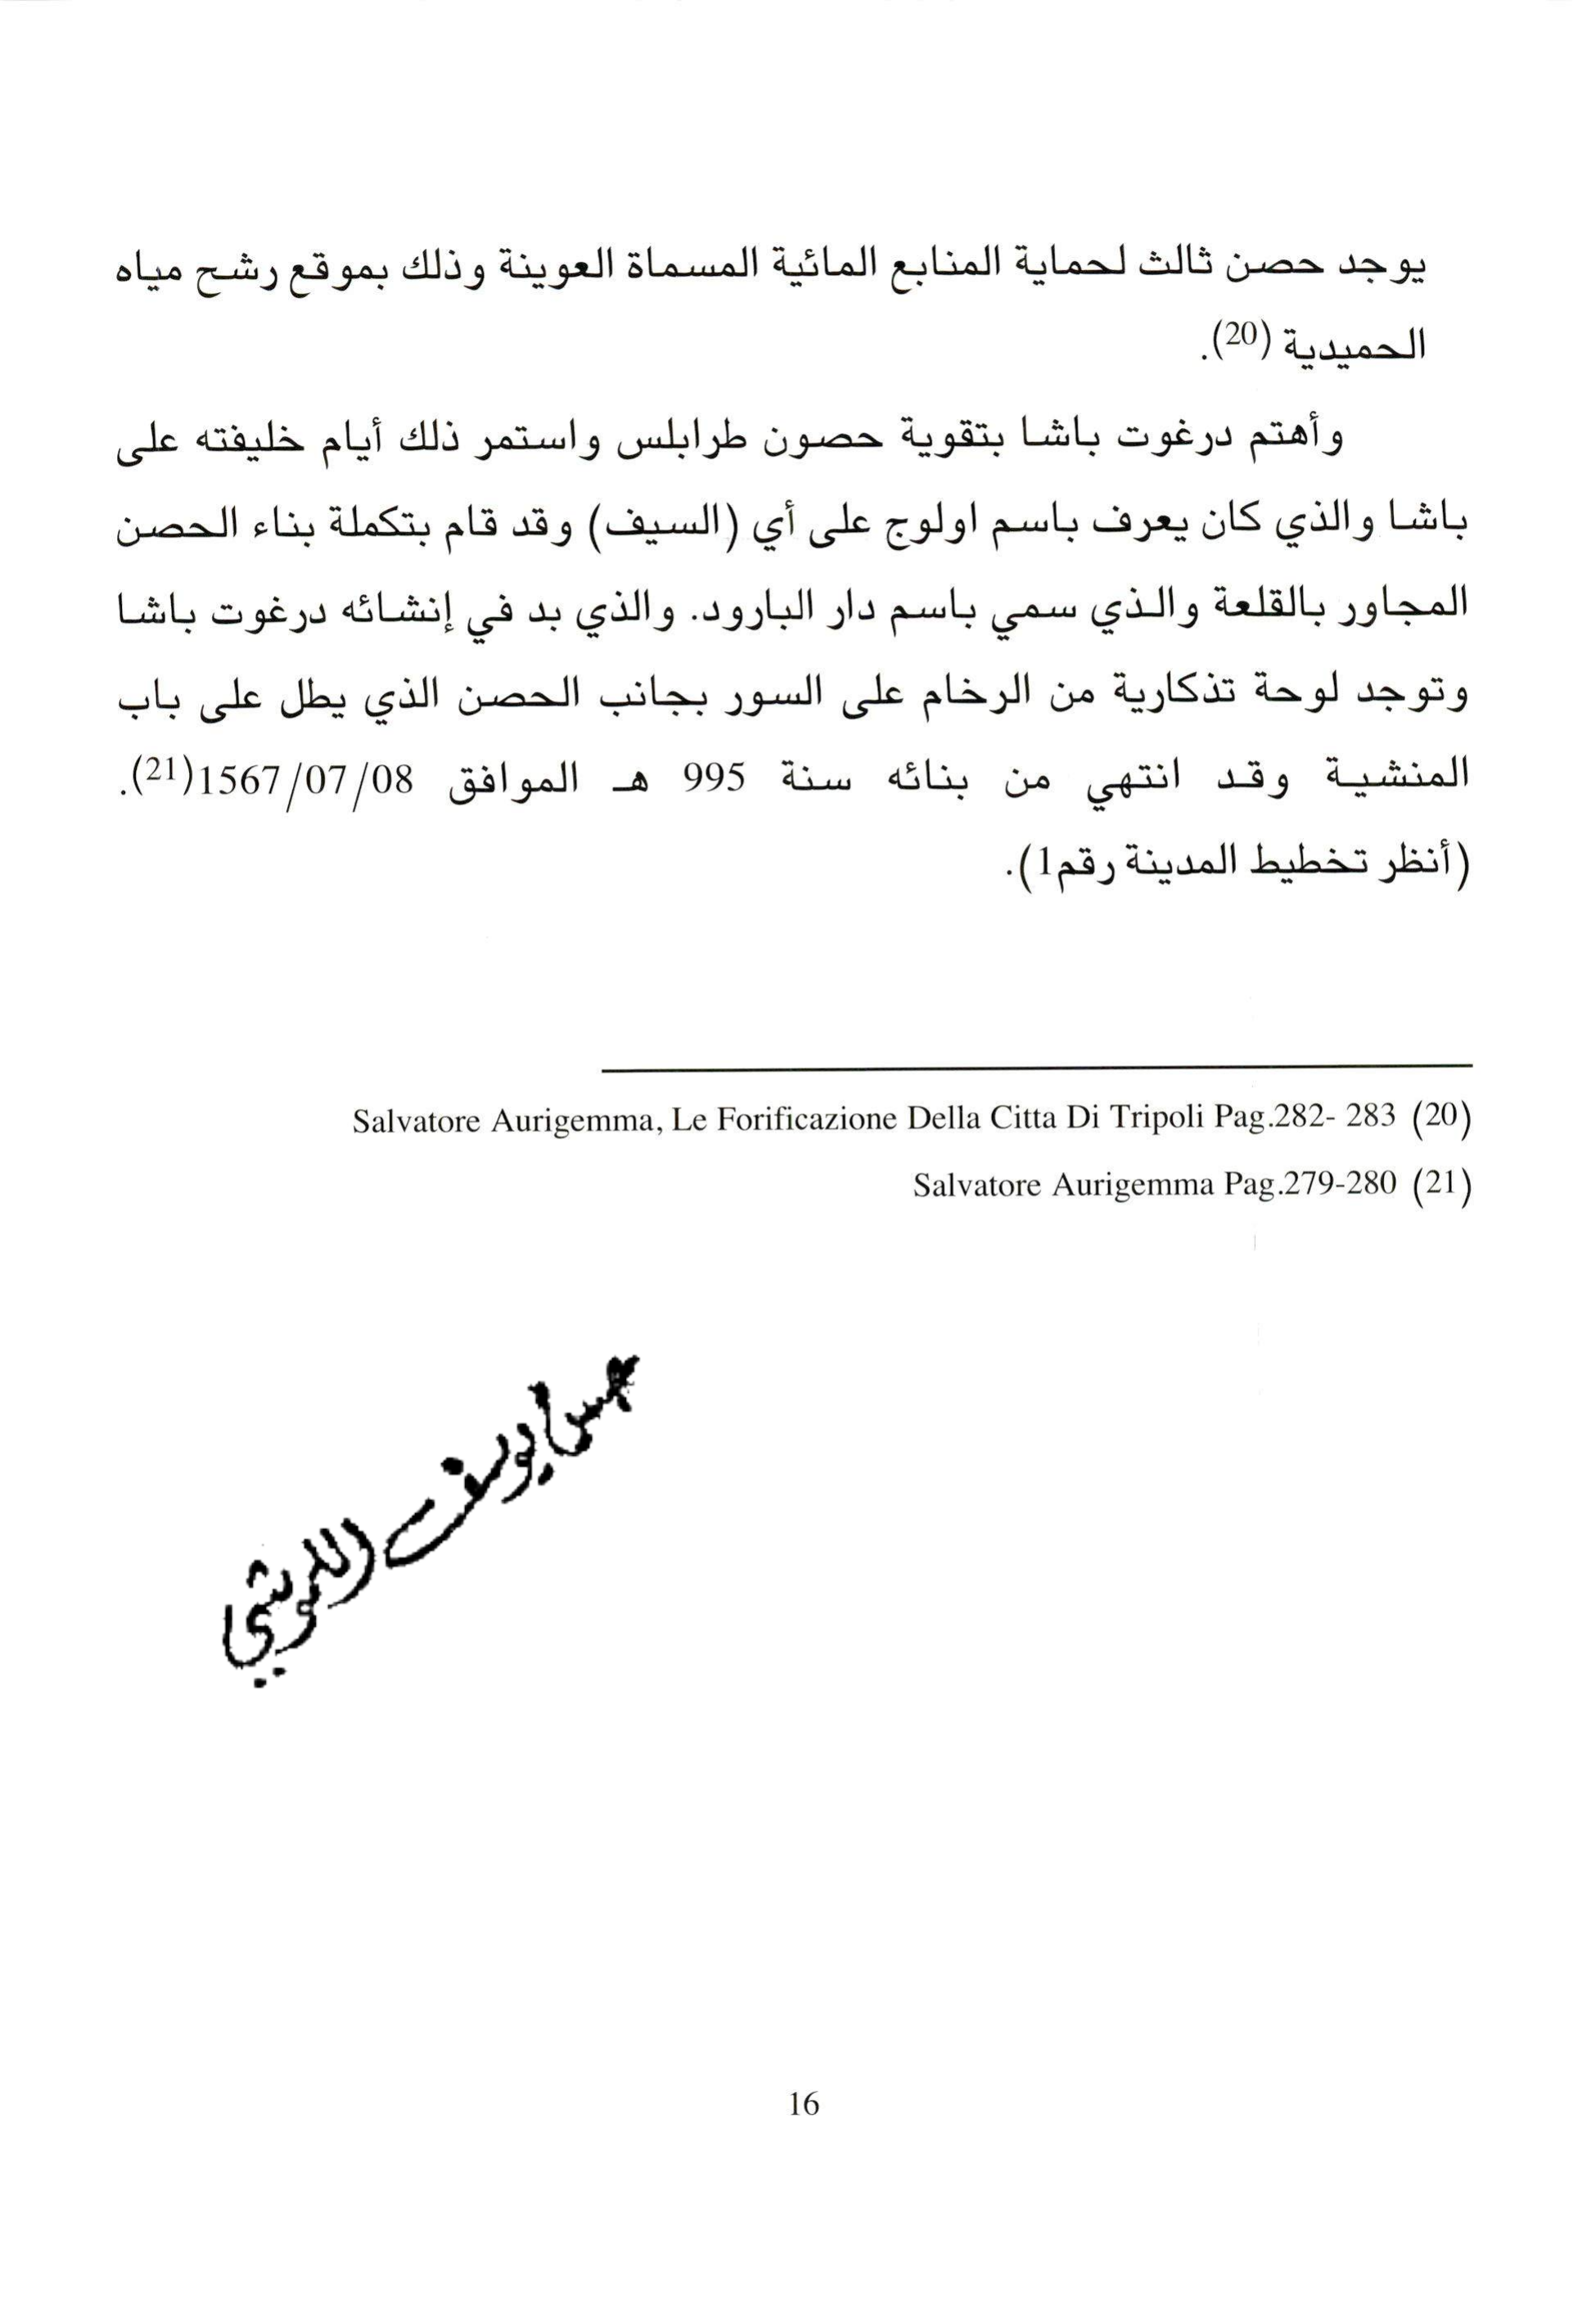 يوجد حصن ثالث لحماية المنابع المائية المسماة العوينة وذلك بموقع رشح مياه
الحميدية (20).
وأهتم درغوت باشا بتقوية حصون طرابلس واستمر ذلك أيام خليفته على
باشا والذي كان يعرف باسم اولوج على أي (السيف) وقد قام بتكملة بناء الحصن
المجاور بالقلعة والذي سمي باسم دار البارود. والذي بد في إنشائه درغوت باشا
وتوجد لوحة تذكارية من الرخام على السور بجانب الحصن الذي يطل على باب
المنشية وقد انتهي من بنائه سنة 995 هـ الموافق 1567/07/08(21).
(أنظر تخطيط المدينة رقم1).
Salvatore Aurigemma, Le Forificazione Della Citta Di Tripoli Pag.282- 283 (20)
Salvatore Aurigemma Pag.279-280 (21)
يوسف
16